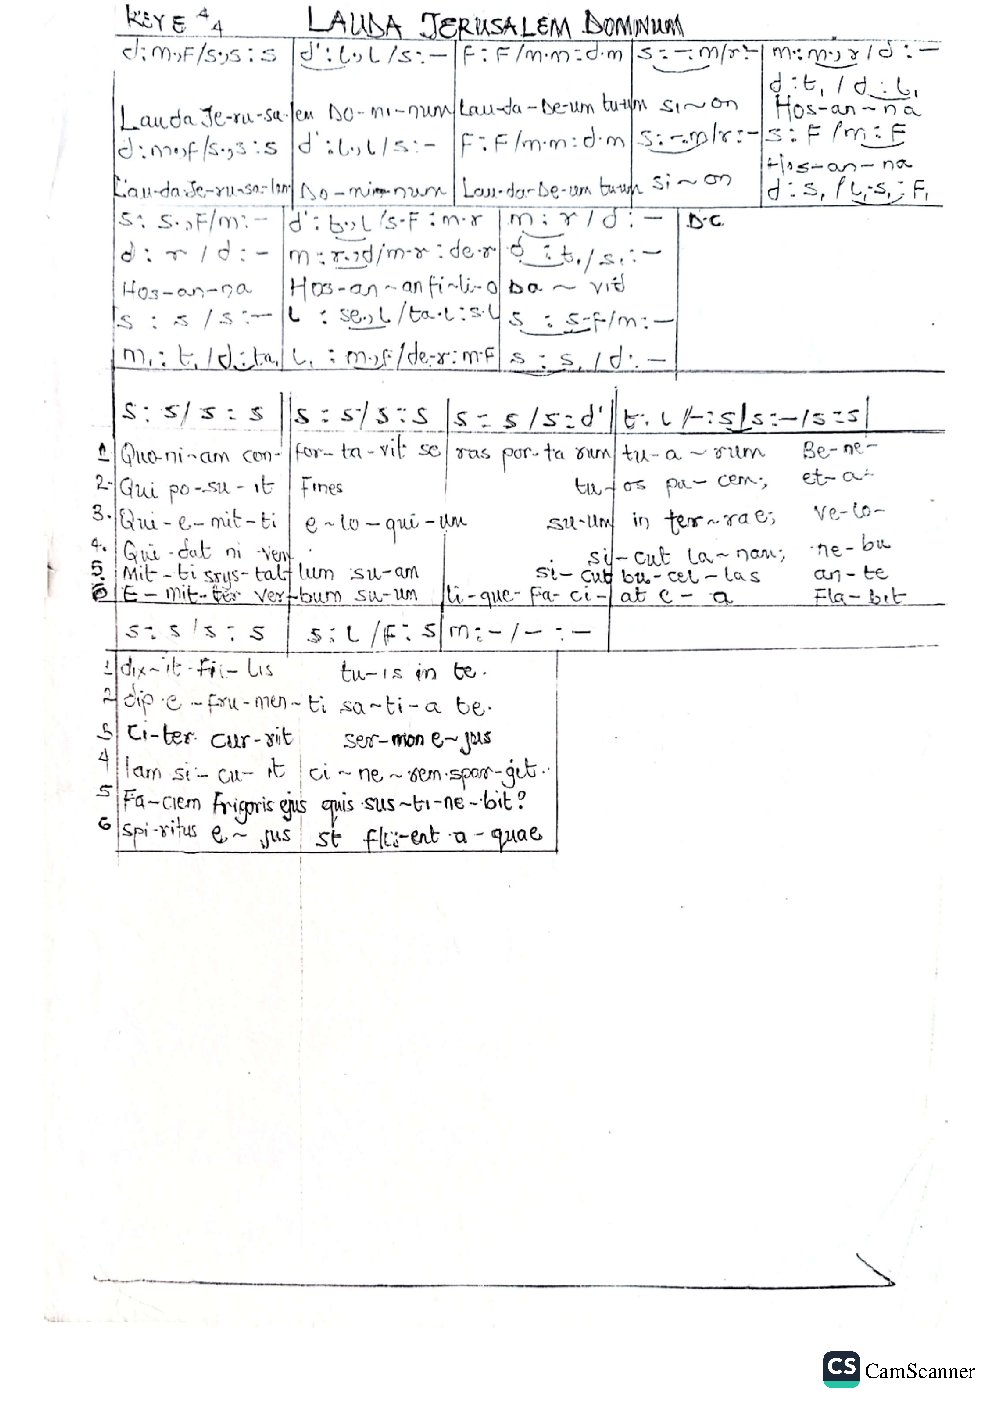 KEY E 4/4 LAUDA JERUSALEM DOMINUM
d:m.,F/s.,s:s | d':l.,l/s:– | F:F/m.m:d.m | s:–.m/r:– | m:m.,r/d:–
d:t,/d:l,
Lauda Je-ru-sa-lem Do-ni-num Lau-da-De-um tu-um si~on Hos-an-na
d:m.,f/s.,s:s | d':l.,l/s:– | F:F/m.m:d.m | s:–.m/r:– | s:F/m:F
Hos-an-na
Lau-da-Je-ru-sa-lem Do-mi-num Lau-da-De-um tu-um si~on d:s,/l,.s,:F,
s:s.,F/m:– | d':t.,l/s.F:m.r | m:r/d:– | D.C.
d:r/d:– | m:r.,d/m.r:de.r | d:t,/s,:–
Hos-an-na Hos-an~an fi-li-o Da~vid
s:s/s:– | l:se.,l/ta.l:s.l | s:s.F/m:–
m,:t,/d:ta, | l,:m.,f/de.r:m.F | s:s,/d:–
s:s/s:s | s:s/s:s | s:s/s:d' | t.l/–:s|s:–/s:s|
1 Quo-ni-am con-for-ta-vit se ras por-ta rum tu-a~rum Be-ne-
2- Qui po-su-it Fines tu-os pa-cem; et-a-
3. Qui-e-mit-ti e~lo-qui-um su-um in ter~rae; ve-lo-
4. Qui-dat ni vem si-cut la-nam; ne-bu
5. Mit-ti srys-tal-lum su-am si-cut bu-cel-las an-te
6 E-mit-ter ver-bum su-um li-que-fa-ci-at e-a Fla-bit
s:s/s:s | s:l/F:s | m:–/–:–
1 dix~it-fii-lis tu-is in te.
2 dip e-fru-men-ti sa~ti-a te.
3 Ci-ter cur-rit ser-mon e~jus
4 lam si-cu-it ci~ne~rem.spar-get.
5 Fa-ciem Frigoris ejus quis sus~ti-ne-bit?
6 spi-ritus e~jus st flu-ent a-quae
CS CamScanner